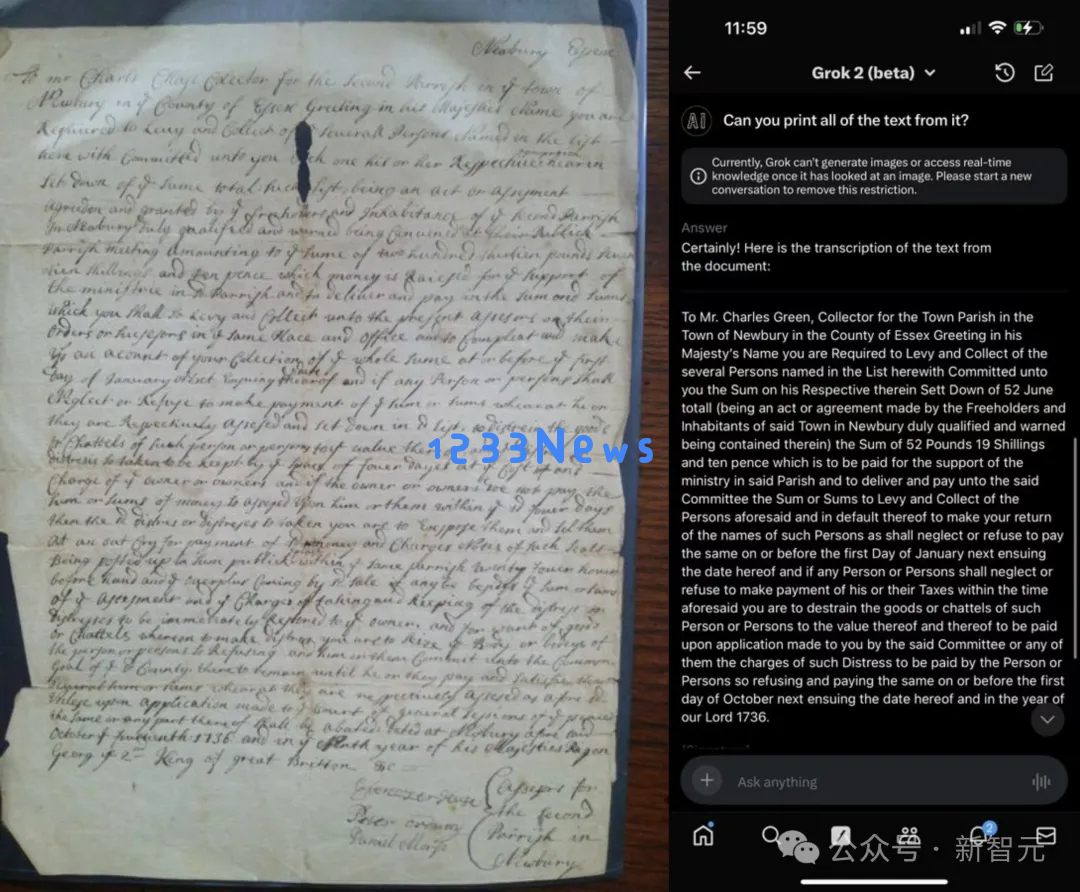 Newbury Essex
To mr Charls Chase Colector for the Second Parrish in ye town of
Newbury in ye County of Essex Greeting in his Majesties Name you are
Required to Levy and Collect of ye Severall Persons Named in the List
here with Committed unto you Each one his or her Respective therein
Set down of ye Same total list, being an act or assesment
agreed on and granted by ye freeholders and Inhabitance of ye Second Parrish
In Newbury Duly qualified and warned being Convened at their Publick
Parrish meeting amounting to ye Sume of two hundred
Shillings and ten pence which money is Raised for ye Support of
the ministrie in Parrish and to deliver and pay in the Sum and Sums
which you shall So Levy and Collect unto the present assesors or their
orders or in ye Same Place and office and to Compleat and make
up an acount of your Colection of ye whole Sume at or before ye first
Day of January next Ensuing ye and if any Person or persons shall
Neglect or Refuse to make payment of ye Sum or Sums whereat he or
they are Respectively assesed and Set down in list, to distrain the goods
or Chattels of such person or persons to ye value
distress so taken to keep ye Space of fower Dayes at ye Cost and
Charge of ye owner or owners and if the owner or owners do not pay the
Sum or Sums of money so assesed upon him or them within ye fower days
then the distres or distreses so taken you are to Expose them and Sel them
At an out Cry for payment of money and Charges Notes of such Seall
Being posted up in Sum publick within ye Same parrish twenty fower houers
before hand and ye overplus Coming by Sale if any be besides ye Sum or Sums
of ye Assesment and ye Charges of taking and keeping of the distress or
distreses to be immediately Restored to ye owner, and for want of goods
or Chattels whereon to make distress you are to Seize ye Body or bodyes of
the person or persons So Refusing and him or them Commit unto the Common
Goal of ye County there to remain until he or they pay and Satisfie
Severall Sum or Sums whereat they are respectively assesed as
unless upon application made to ye Court of general Sessions of ye peace
the same or any part thereof shall be abated dated at Newbury
October ye fourteenth 1736 and in ye Year of his Majesties
Georg ye 2nd King of great Britton &c
Assesrs for
the Second
Parrish in
Newbury
Daniel
1233News
11:59
Grok 2 (beta)
Can you print all of the text from it?
Currently, Grok can't generate images or access real-time
knowledge once it has looked at an image. Please start a new
conversation to remove this restriction.
Answer
Certainly! Here is the transcription of the text from
the document:
To Mr. Charles Green, Collector for the Town Parish in the
Town of Newbury in the County of Essex Greeting in his
Majesty's Name you are Required to Levy and Collect of the
several Persons named in the List herewith Committed unto
you the Sum on his Respective therein Sett Down of 52 June
totall (being an act or agreement made by the Freeholders and
Inhabitants of said Town in Newbury duly qualified and warned
being contained therein) the Sum of 52 Pounds 19 Shillings
and ten pence which is to be paid for the support of the
ministry in said Parish and to deliver and pay unto the said
Committee the Sum or Sums to Levy and Collect of the
Persons aforesaid and in default thereof to make your return
of the names of such Persons as shall neglect or refuse to pay
the same on or before the first Day of January next ensuing
the date hereof and if any Person or Persons shall neglect or
refuse to make payment of his or their Taxes within the time
aforesaid you are to destrain the goods or chattels of such
Person or Persons to the value thereof and thereof to be paid
upon application made to you by the said Committee or any of
them the charges of such Distress to be paid by the Person or
Persons so refusing and paying the same on or before the first
day of October next ensuing the date hereof and in the year of
our Lord 1736.
Ask anything
2
公众号 · 新智元